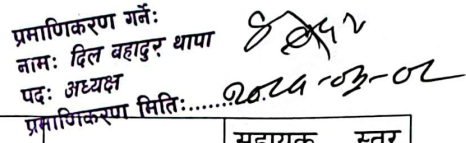 प्रमाणिकरण गर्नेः
नामः दिल वहादुर थापा
पदः अध्यक्ष
प्रमाणिकरण मितिः......
सहायक स्तर